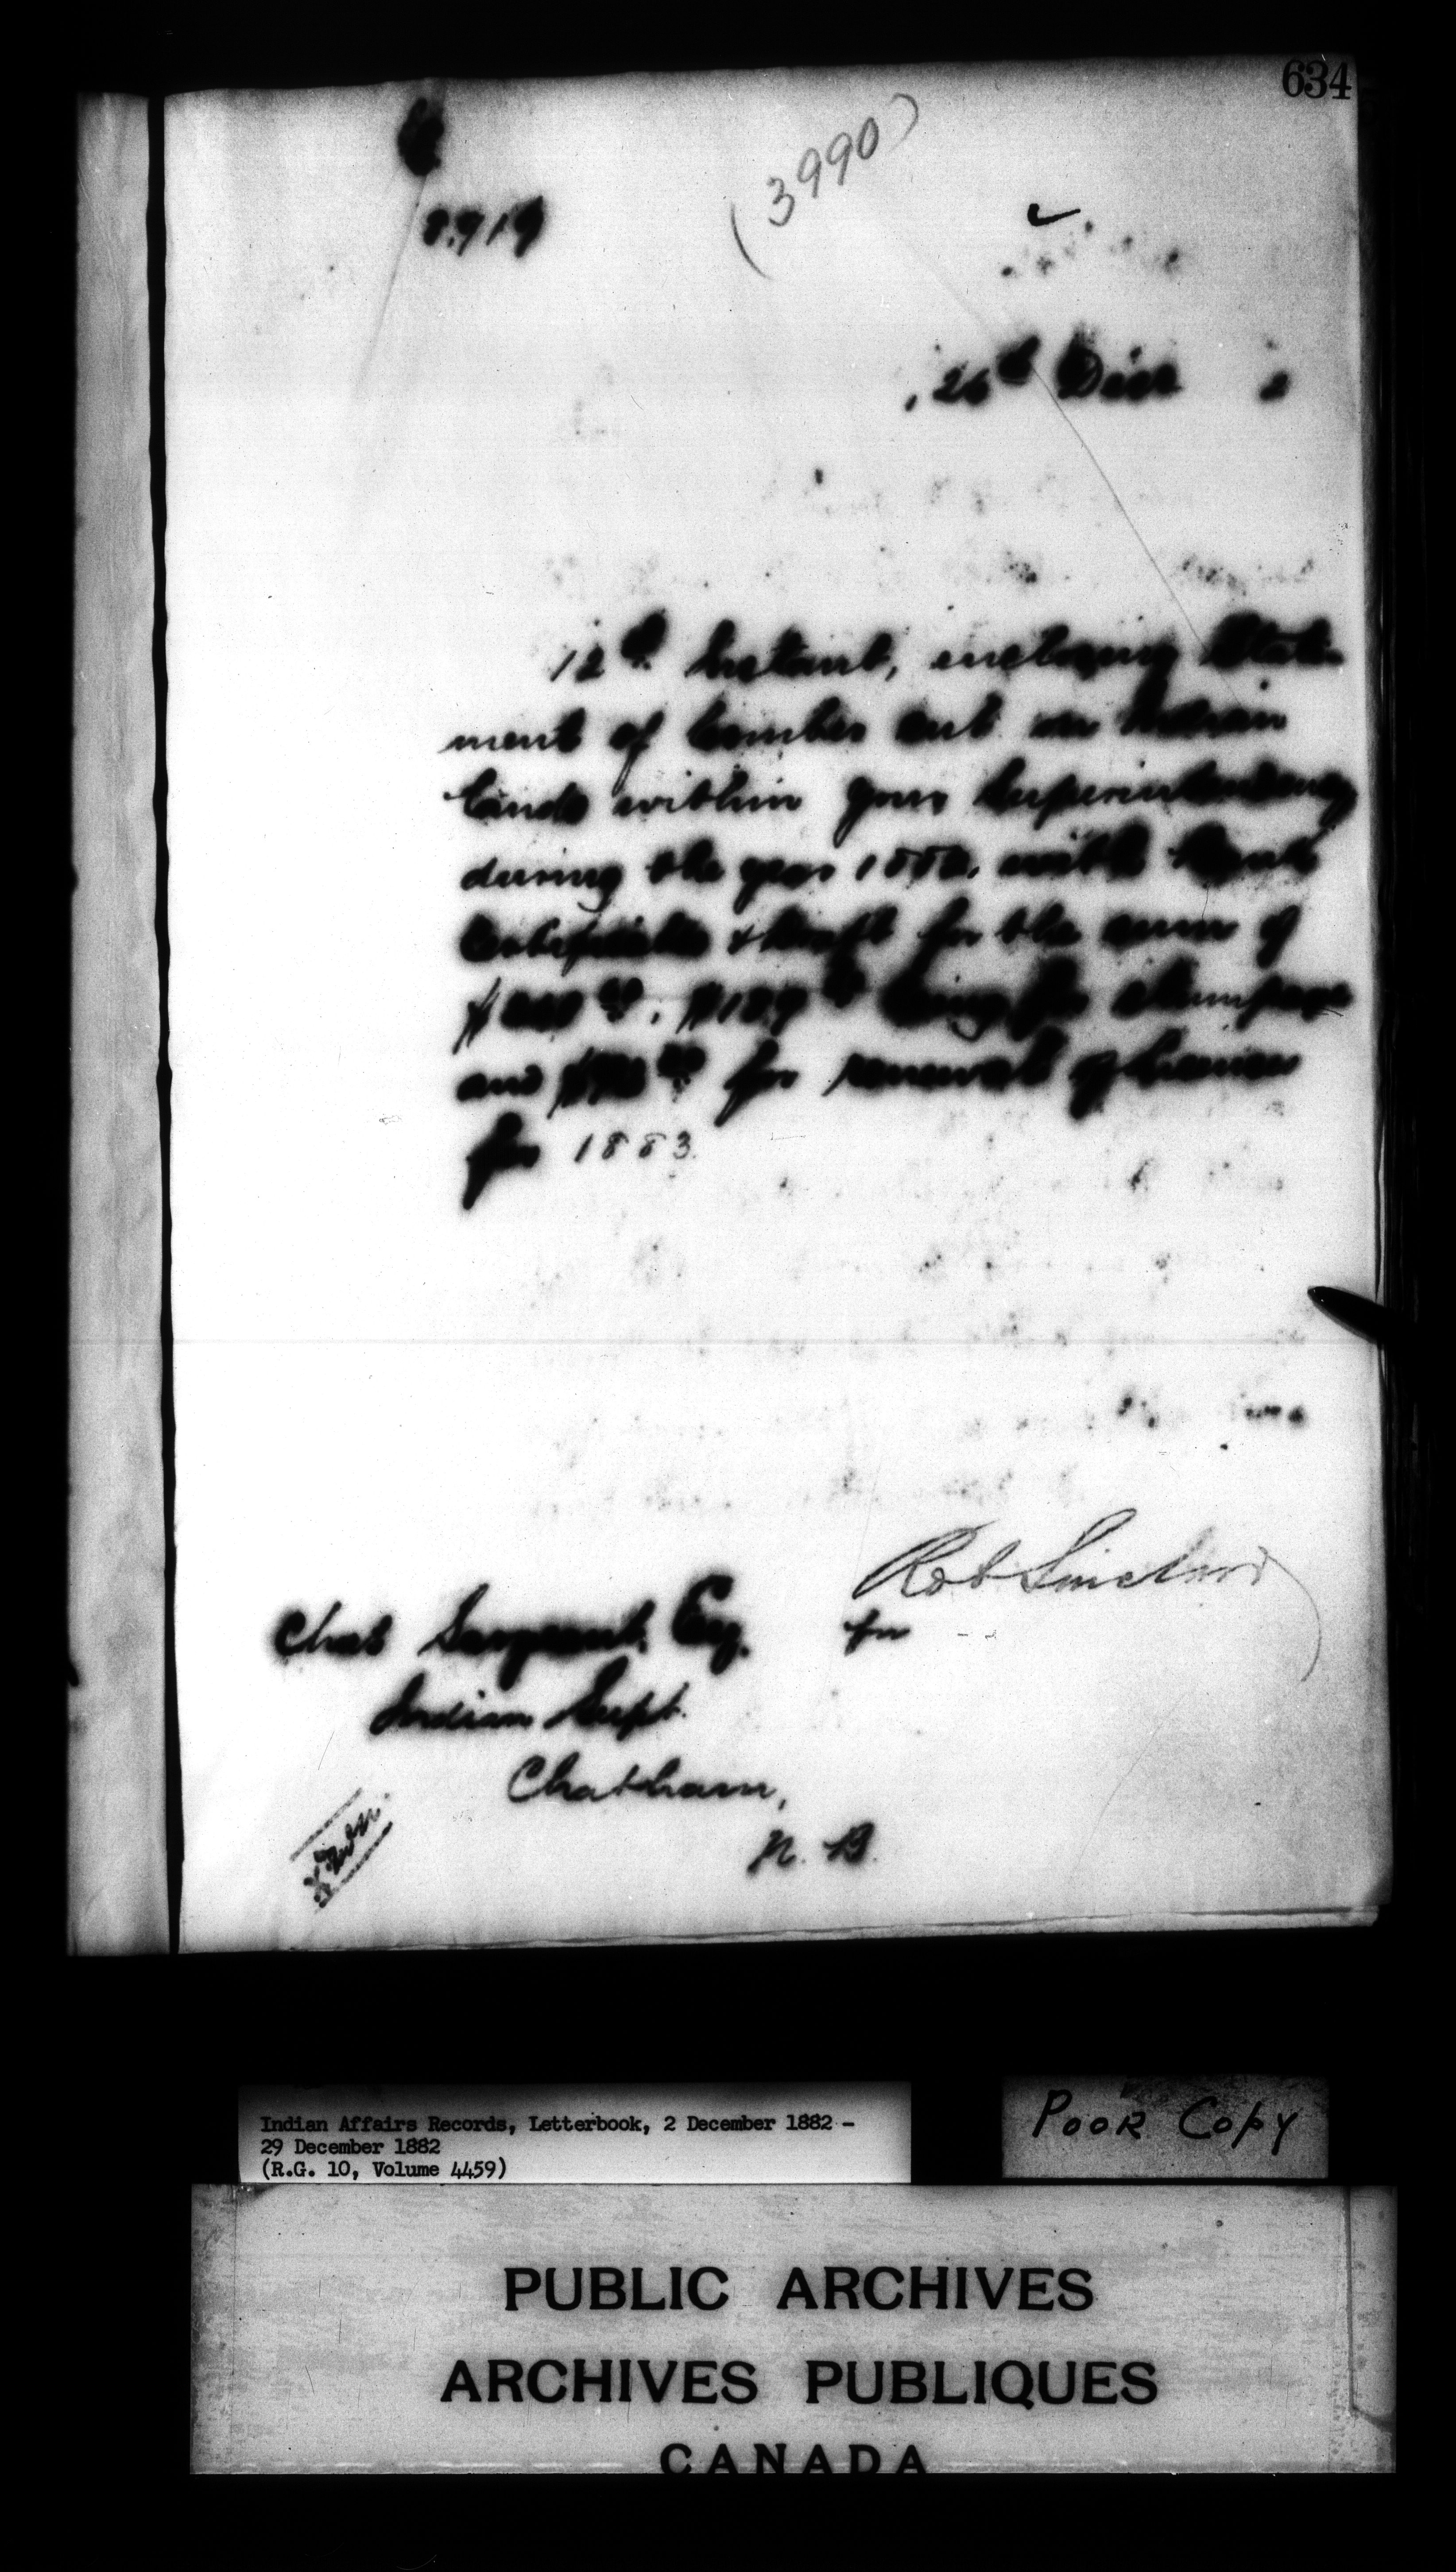 634
(3990)
26th Decr 2
12th Instant, enclosing State-
ment of timber cut on Indian
Lands within your Superintendency
during the year 1882, with Bank
Certificate & draft for the sum of
being for stumpage
and for renewal of license
for 1883.
Rob Sinclair
for
Chas Sargeant, Esq.
Indian Supt.
Chatham,
N. B.
Indian Affairs Records, Letterbook, 2 December 1882 -
29 December 1882
(R.G. 10, Volume 4459)
POOR COPY
PUBLIC ARCHIVES
ARCHIVES PUBLIQUES
CANADA